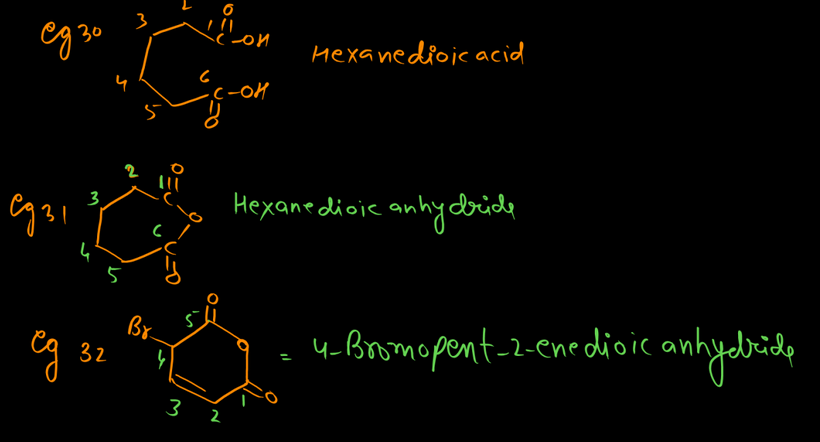 Eg 30
2
3
4
5
1
C-OH
O
6
C-OH
O
Hexanedioic acid
Eg 31
2
3
4
5
1
C
O
O
6
C
O
Hexanedioic anhydride
Eg 32
Br
5
O
O
4
3
2
1
O
= 4-Bromopent-2-enedioic anhydride